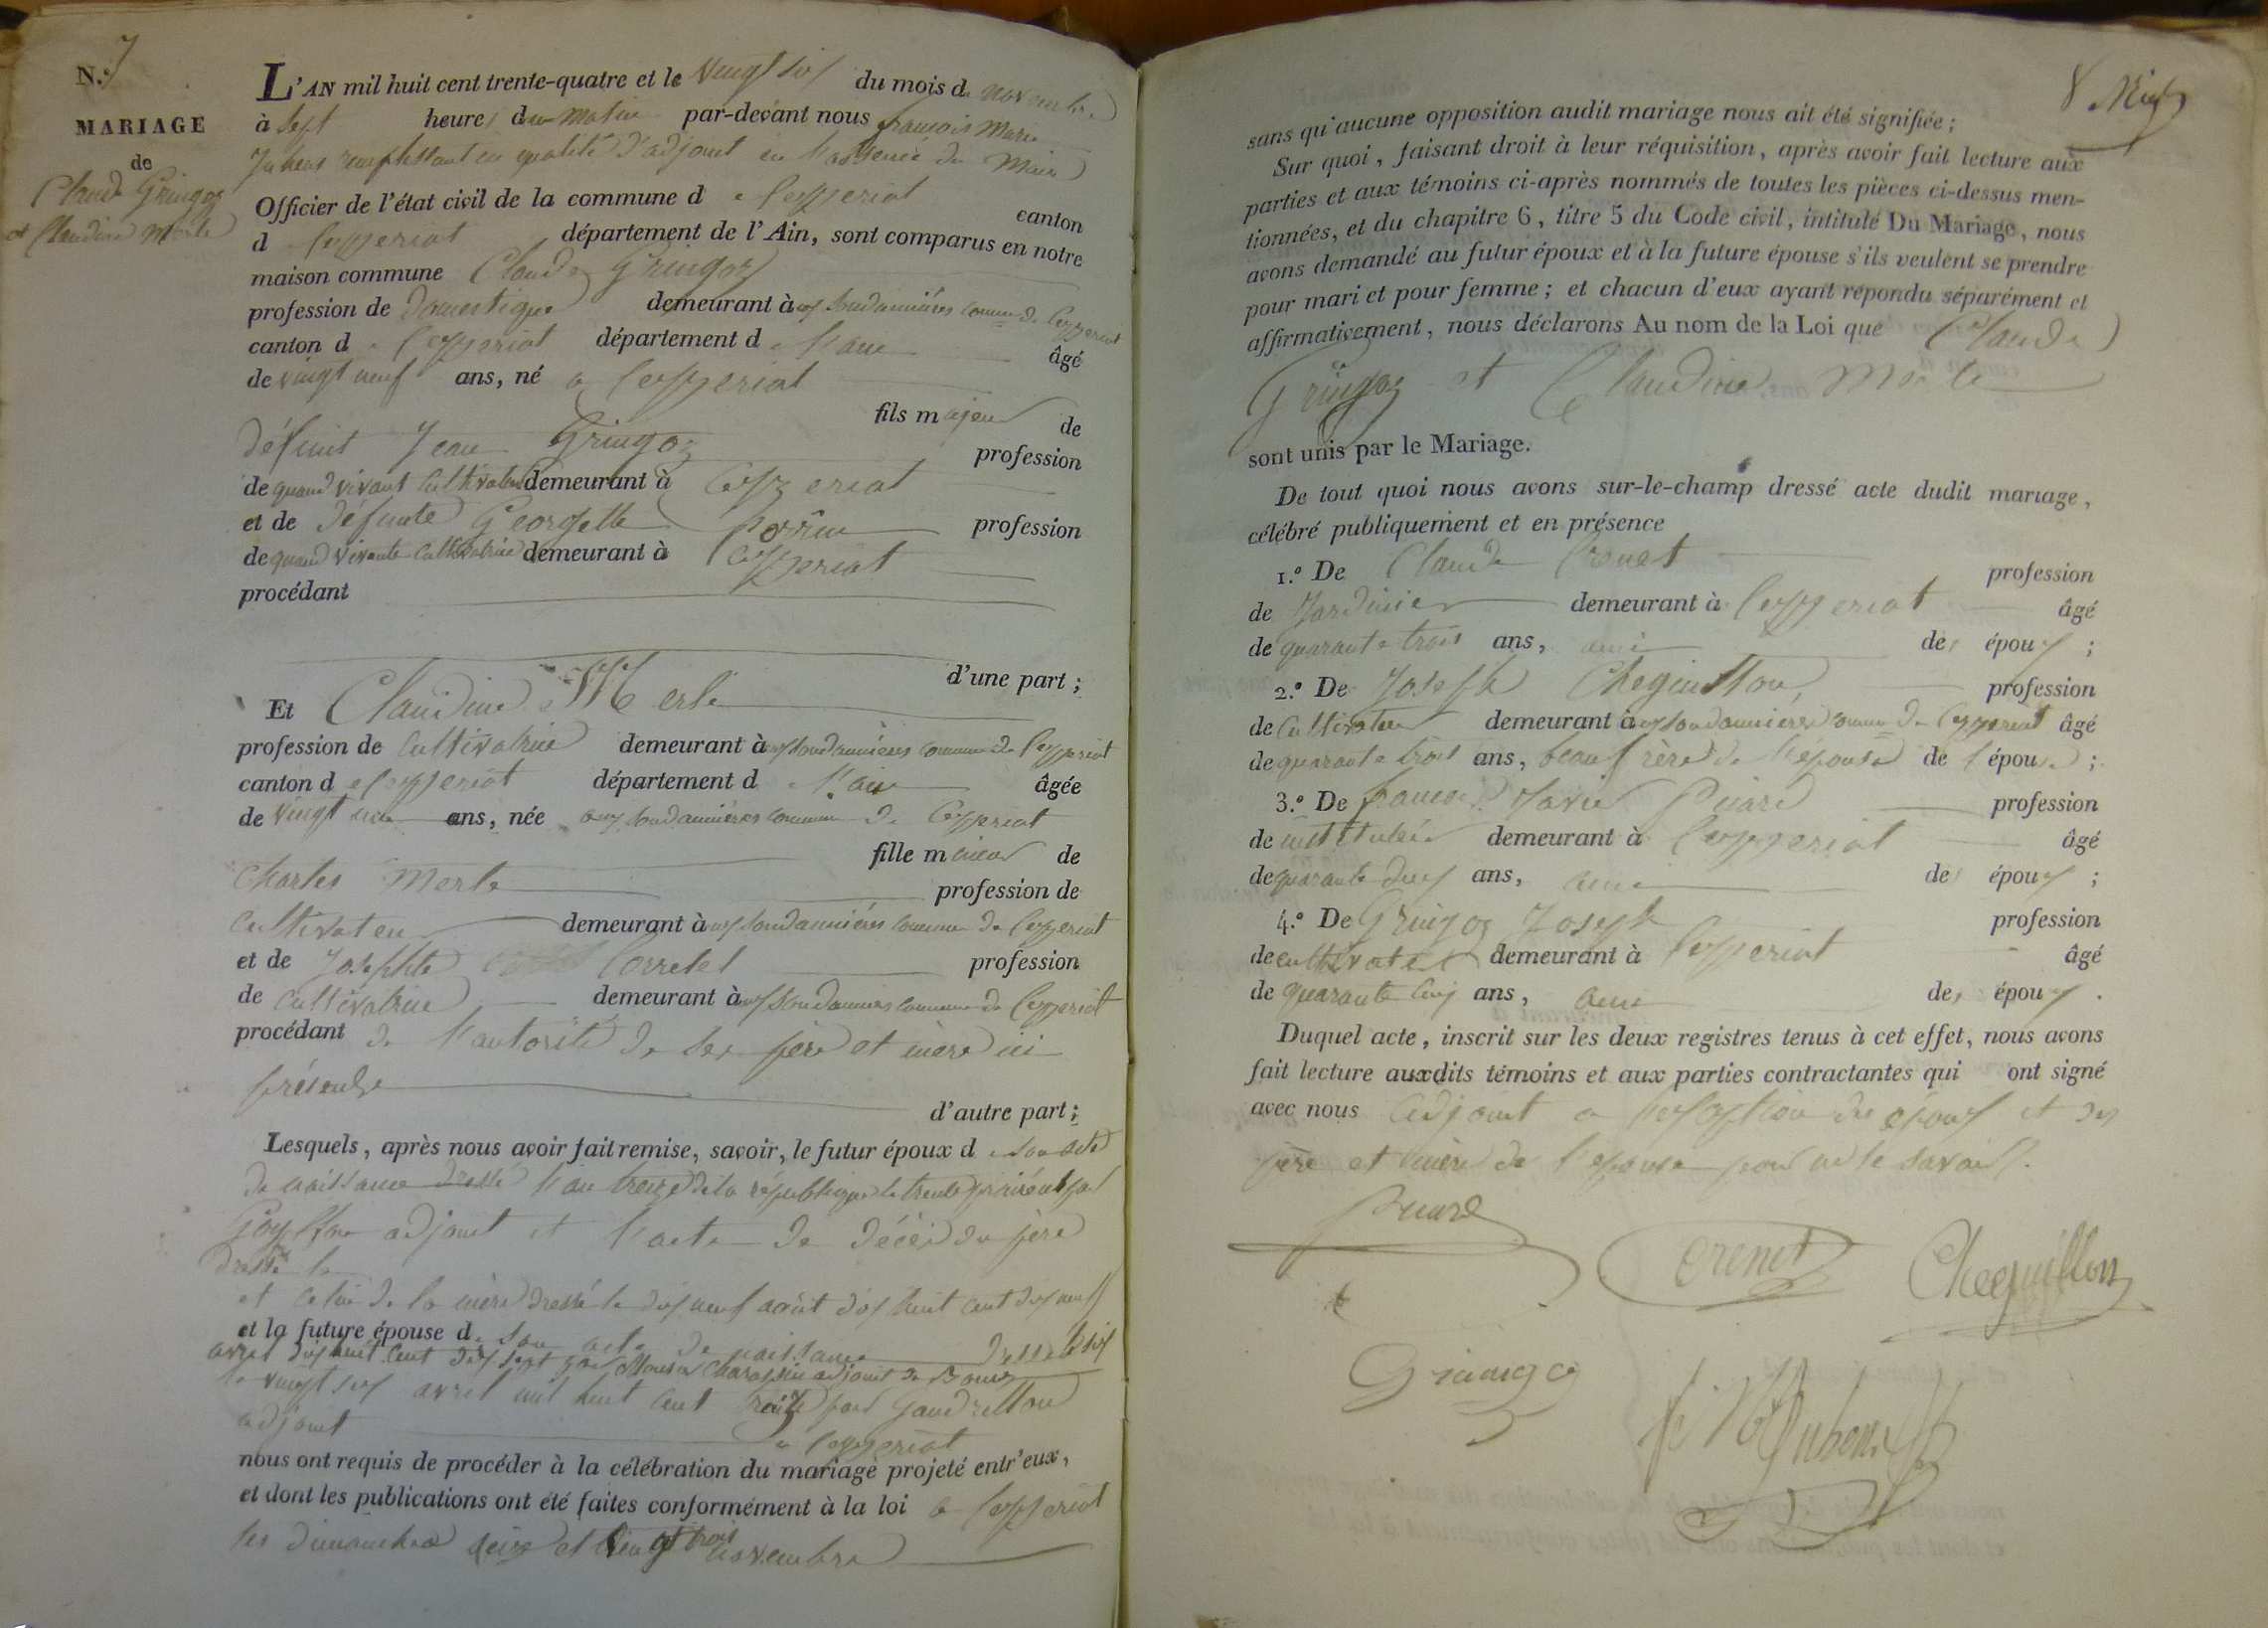 N.º 7
MARIAGE
de
Claude Gringoz
et Claudine Merle
L'AN mil huit cent trente-quatre et le vingt six du mois de novembre
à sept heures du matin par-devant nous françois Marie
remplissant en qualité d'adjoint en l'absence du Maire
Officier de l'état civil de la commune de Ceyzeriat canton
de Ceyzeriat département de l'Ain, sont comparus en notre
maison commune Claude Gringoz
profession de Domestique demeurant à aux Soudannières commune de Ceyzeriat
canton de Ceyzeriat département de l'ain âgé
de vingt neuf ans, né à Ceyzeriat
fils majeur de
défunt Jean Gringoz profession
de quand vivant Cultivateur demeurant à Ceyzeriat
et de défunte Georgette Perrin profession
de quand vivante Cultivatrice demeurant à Ceyzeriat
procédant
d'une part ;
Et Claudine Merle
profession de Cultivatrice demeurant à aux Soudannières commune de Ceyzeriat
canton de Ceyzeriat département de l'ain âgée
de vingt un ans, née aux Soudannières commune de Ceyzeriat
fille mineur de
Charles Merle profession de
Cultivateur demeurant à aux Soudannières commune de Ceyzeriat
et de Josephte Corretel profession
de Cultivatrice demeurant à aux Soudannières commune de Ceyzeriat
procédant de l'autorité de ses père et mère ici
présents
d'autre part ;
Lesquels, après nous avoir fait remise, savoir, le futur époux de son acte
de naissance dressé l'an treize de la république le trente prairéal par
adjoint et l'acte de décès du père
dressé le
et celui de la mère dressé le dix neuf août dix huit cent dix neuf
et la future épouse de son acte de naissance dressé le six
avril dix huit cent dix sept par Monsieur adjoint de Bourg
le vingt six avril mil huit cent treize par
adjoint à Ceyzeriat
nous ont requis de procéder à la célébration du mariage projeté entr'eux,
et dont les publications ont été faites conformément à la loi à Ceyzeriat
les dimanches seize et vingt trois novembre
8
sans qu'aucune opposition audit mariage nous ait été signifiée ;
Sur quoi, faisant droit à leur réquisition, après avoir fait lecture aux
parties et aux témoins ci-après nommés de toutes les pièces ci-dessus men-
tionnées, et du chapitre 6, titre 5 du Code civil, intitulé Du Mariage, nous
avons demandé au futur époux et à la future épouse s'ils veulent se prendre
pour mari et pour femme ; et chacun d'eux ayant répondu séparément et
affirmativement, nous déclarons Au nom de la Loi que Claude
Gringoz et Claudine Merle
sont unis par le Mariage.
De tout quoi nous avons sur-le-champ dressé acte dudit mariage,
célébré publiquement et en présence
1.º De Claude Crenet profession
de Jardinier demeurant à Ceyzeriat âgé
de quarante trois ans, ami des époux ;
2.º De Joseph Cheguillon profession
de Cultivateur demeurant à aux Soudannières commune de Ceyzeriat âgé
de quarante trois ans, beaufrère de l'épouse de l'épouse ;
3.º De françois Marie Picard profession
de instituteur demeurant à Ceyzeriat âgé
de quarante deux ans, ami des époux ;
4.º De Gringoz Joseph profession
de cultivateur demeurant à Ceyzeriat âgé
de quarante cinq ans, ami des époux .
Duquel acte, inscrit sur les deux registres tenus à cet effet, nous avons
fait lecture auxdits témoins et aux parties contractantes qui ont signé
avec nous adjoint à l'exception des époux et des
père et mère de l'épouse pour ne le savoir.
Crenet
Cheguillon